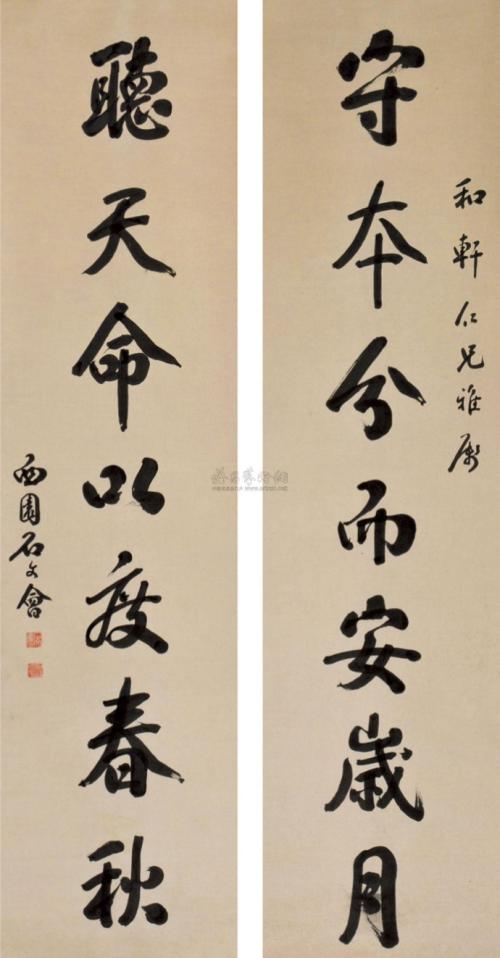 和軒仁兄雅屬
守本分而安歲月
聽天命以度春秋
西園石文會